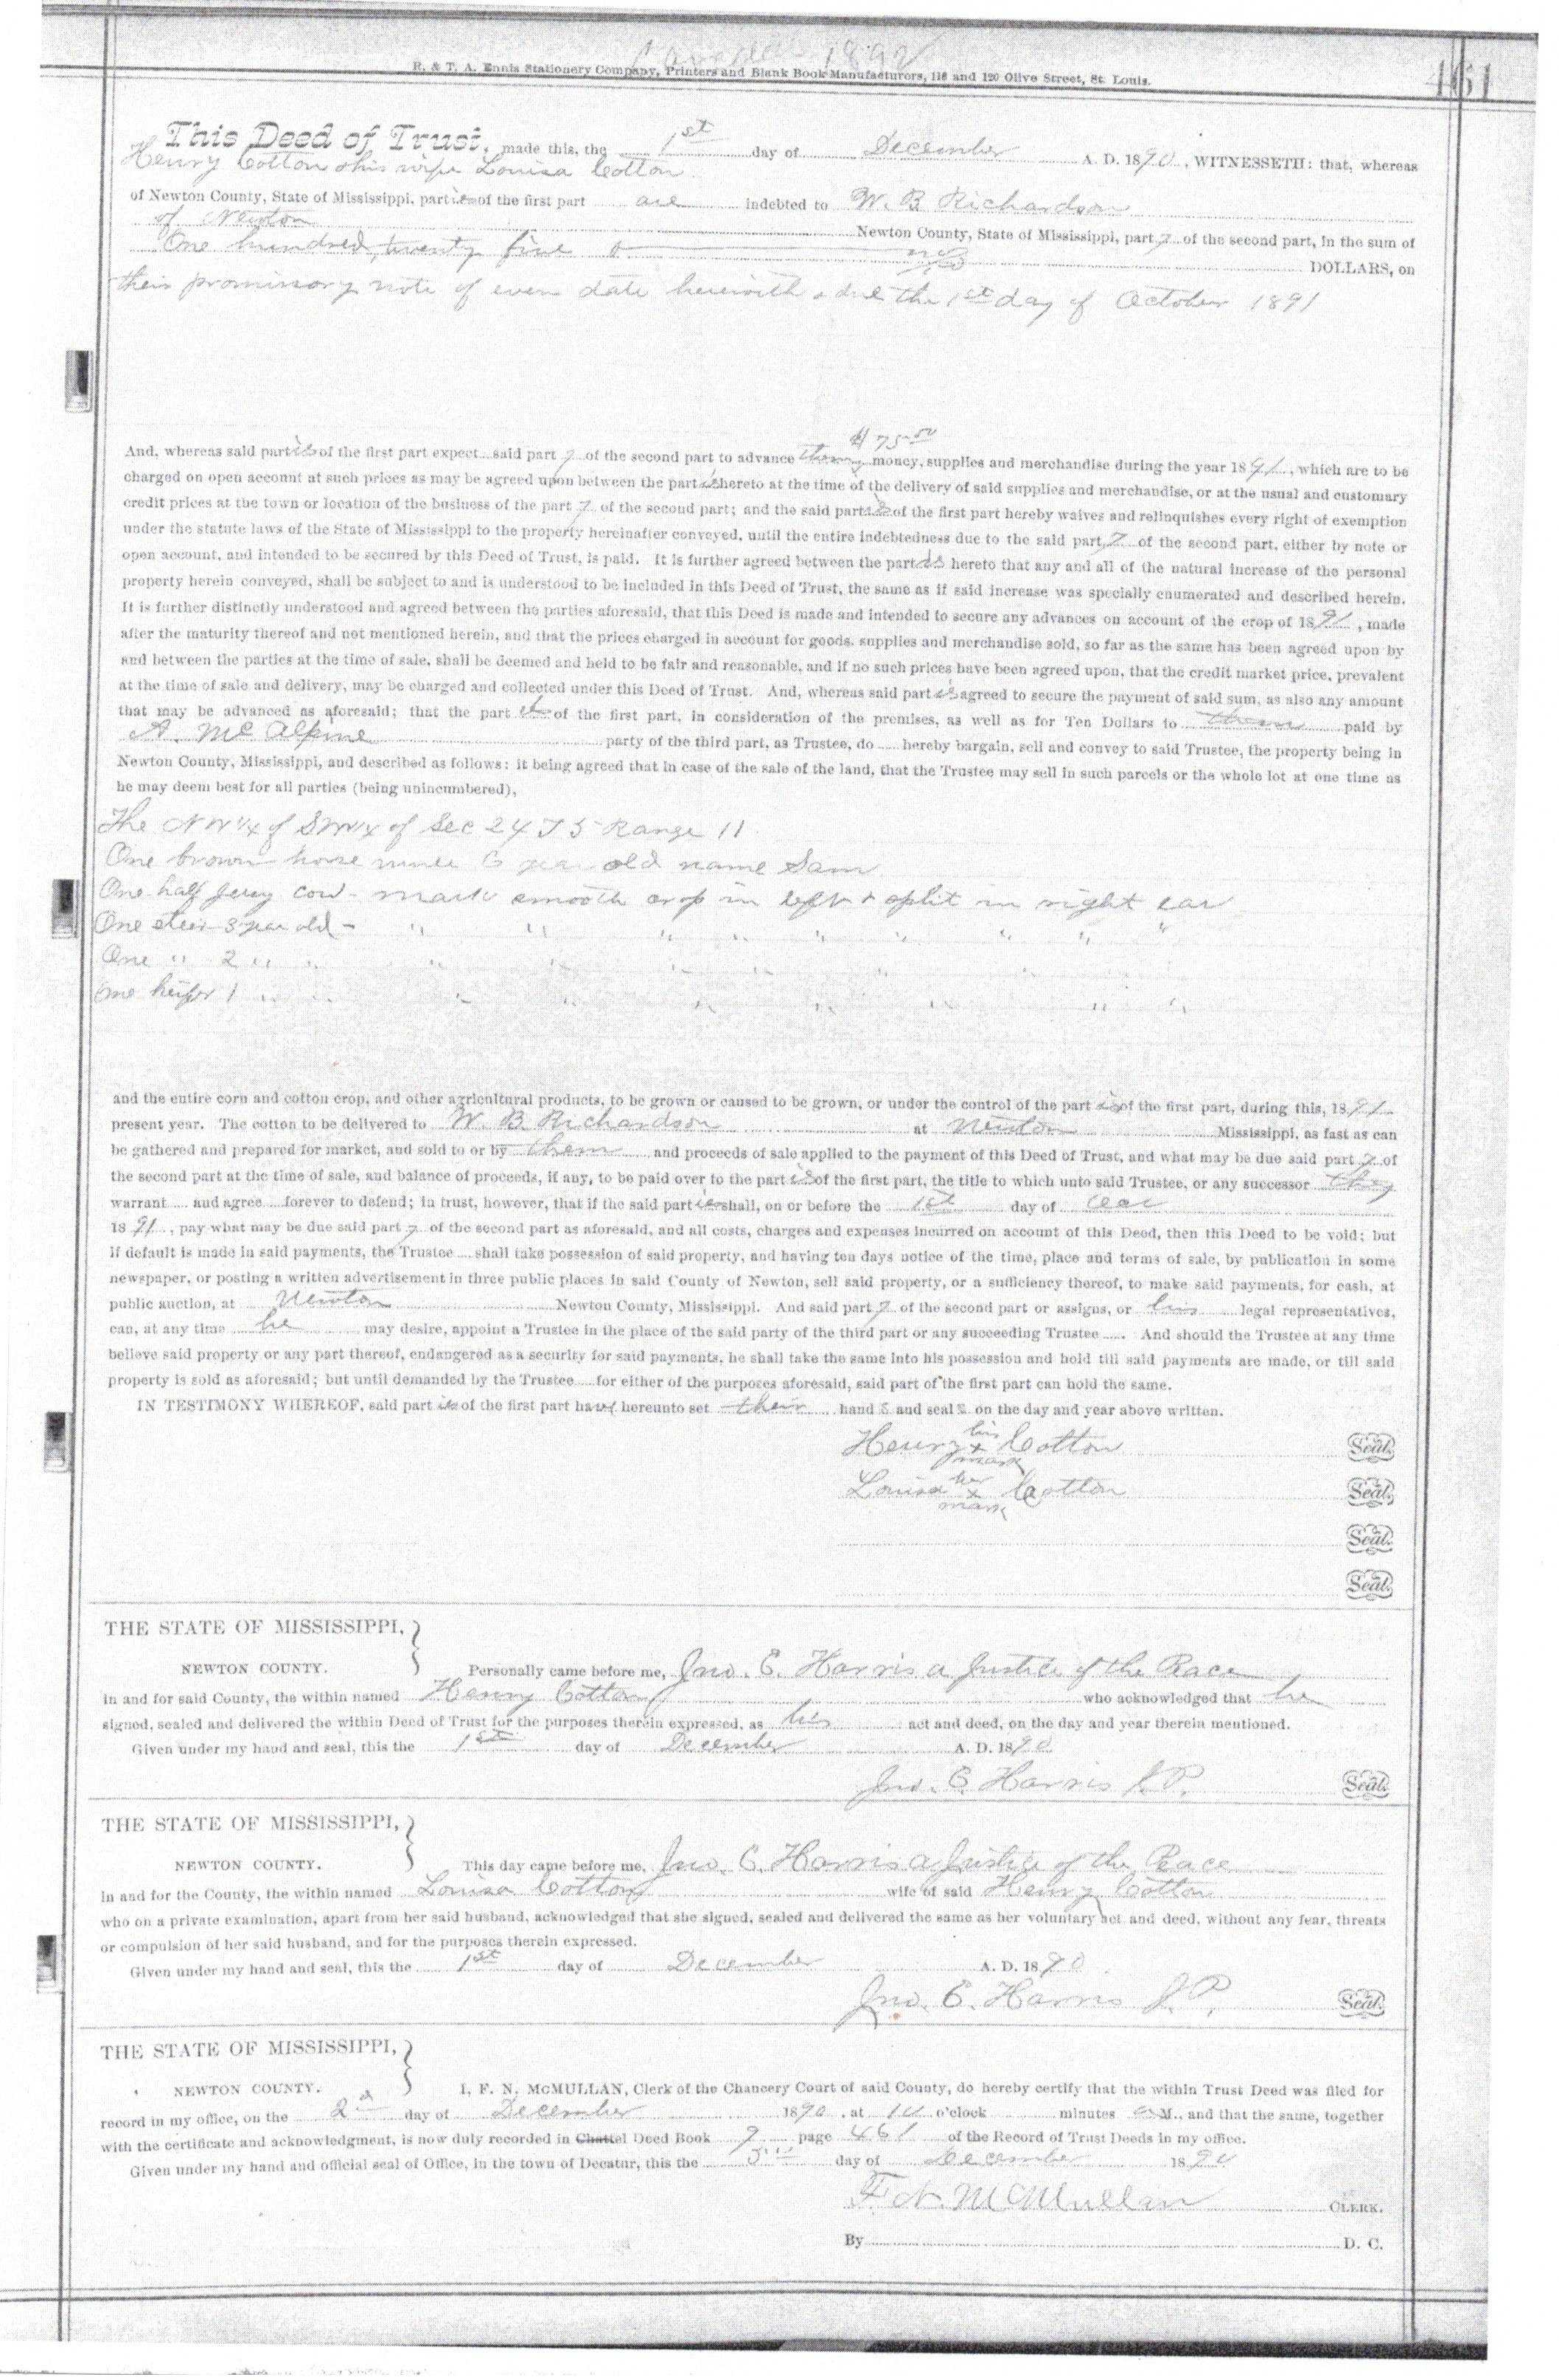 Canceled 1892
R. & T. A. Ennis Stationery Company, Printers and Blank Book Manufacturers, 118 and 120 Olive Street, St. Louis.
461
This Deed of Trust, made this, the 1st day of December A. D. 1890, WITNESSETH: that, whereas
Henry Cotton & his wife Louisa Cotton
of Newton County, State of Mississippi, parties of the first part are indebted to W. B Richardson
of Newton Newton County, State of Mississippi, party of the second part, in the sum of
One hundred, twenty five & no/100 DOLLARS, on
their promissory note of even date herewith & due the 1st day of October 1891
$75.00
And, whereas said parties of the first part expect said party of the second part to advance them money, supplies and merchandise during the year 1891, which are to be
charged on open account at such prices as may be agreed upon between the parties hereto at the time of the delivery of said supplies and merchandise, or at the usual and customary
credit prices at the town or location of the business of the party of the second part; and the said parties of the first part hereby waives and relinquishes every right of exemption
under the statute laws of the State of Mississippi to the property hereinafter conveyed, until the entire indebtedness due to the said party of the second part, either by note or
open account, and intended to be secured by this Deed of Trust, is paid. It is further agreed between the parties hereto that any and all of the natural increase of the personal
property herein conveyed, shall be subject to and is understood to be included in this Deed of Trust, the same as if said increase was specially enumerated and described herein.
It is further distinctly understood and agreed between the parties aforesaid, that this Deed is made and intended to secure any advances on account of the crop of 1891, made
after the maturity thereof and not mentioned herein, and that the prices charged in account for goods, supplies and merchandise sold, so far as the same has been agreed upon by
and between the parties at the time of sale, shall be deemed and held to be fair and reasonable, and if no such prices have been agreed upon, that the credit market price, prevalent
at the time of sale and delivery, may be charged and collected under this Deed of Trust. And, whereas said parties agreed to secure the payment of said sum, as also any amount
that may be advanced as aforesaid; that the parties of the first part, in consideration of the premises, as well as for Ten Dollars to them paid by
A. McAlpine party of the third part, as Trustee, do hereby bargain, sell and convey to said Trustee, the property being in
Newton County, Mississippi, and described as follows: it being agreed that in case of the sale of the land, that the Trustee may sell in such parcels or the whole lot at one time as
he may deem best for all parties (being unincumbered),
The NW 1/4 of SW 1/4 of Sec 24 T 5 Range 11
One brown horse mule 6 year old name Sam
One half Jersey cow - mark smooth crop in left & split in right ear
One steer 3 year old - " " " " " " " " "
One " 2 " " " " " " " "
One heifer 1 " " " " " " " " "
and the entire corn and cotton crop, and other agricultural products, to be grown or caused to be grown, or under the control of the parties of the first part, during this, 1891
present year. The cotton to be delivered to W. B Richardson at Newton Mississippi, as fast as can
be gathered and prepared for market, and sold to or by them and proceeds of sale applied to the payment of this Deed of Trust, and what may be due said party of
the second part at the time of sale, and balance of proceeds, if any, to be paid over to the parties of the first part, the title to which unto said Trustee, or any successor they
warrant and agree forever to defend; in trust, however, that if the said parties shall, on or before the 1st day of Oct
1891, pay what may be due said party of the second part as aforesaid, and all costs, charges and expenses incurred on account of this Deed, then this Deed to be void; but
if default is made in said payments, the Trustee shall take possession of said property, and having ten days notice of the time, place and terms of sale, by publication in some
newspaper, or posting a written advertisement in three public places in said County of Newton, sell said property, or a sufficiency thereof, to make said payments, for cash, at
public auction, at Newton Newton County, Mississippi. And said party of the second part or assigns, or his legal representatives,
can, at any time he may desire, appoint a Trustee in the place of the said party of the third part or any succeeding Trustee. And should the Trustee at any time
believe said property or any part thereof, endangered as a security for said payments, he shall take the same into his possession and hold till said payments are made, or till said
property is sold as aforesaid; but until demanded by the Trustee for either of the purposes aforesaid, said part of the first part can hold the same.
IN TESTIMONY WHEREOF, said parties of the first part have hereunto set their hands and seals on the day and year above written.
Henry his x mark Cotton Seal.
Louisa her x mark Cotton Seal.
Seal.
Seal.
THE STATE OF MISSISSIPPI,
NEWTON COUNTY. Personally came before me, Jno. E. Harris a Justice of the Peace
in and for said County, the within named Henry Cotton who acknowledged that he
signed, sealed and delivered the within Deed of Trust for the purposes therein expressed, as his act and deed, on the day and year therein mentioned.
Given under my hand and seal, this the 1st day of December A. D. 1890
Jno. E. Harris J.P. Seal.
THE STATE OF MISSISSIPPI,
NEWTON COUNTY. This day came before me, Jno. E. Harris a Justice of the Peace
in and for the County, the within named Louisa Cotton wife of said Henry Cotton
who on a private examination, apart from her said husband, acknowledged that she signed, sealed and delivered the same as her voluntary act and deed, without any fear, threats
or compulsion of her said husband, and for the purposes therein expressed.
Given under my hand and seal, this the 1st day of December A. D. 1890
Jno. E. Harris J.P. Seal.
THE STATE OF MISSISSIPPI,
NEWTON COUNTY. I, F. N. MCMULLAN, Clerk of the Chancery Court of said County, do hereby certify that the within Trust Deed was filed for
record in my office, on the 2d day of December 1890, at 10 o'clock minutes a M., and that the same, together
with the certificate and acknowledgment, is now duly recorded in Chattel Deed Book 9 page 461 of the Record of Trust Deeds in my office.
Given under my hand and official seal of Office, in the town of Decatur, this the day of December 1890
F. N. McMullan CLERK.
By D. C.